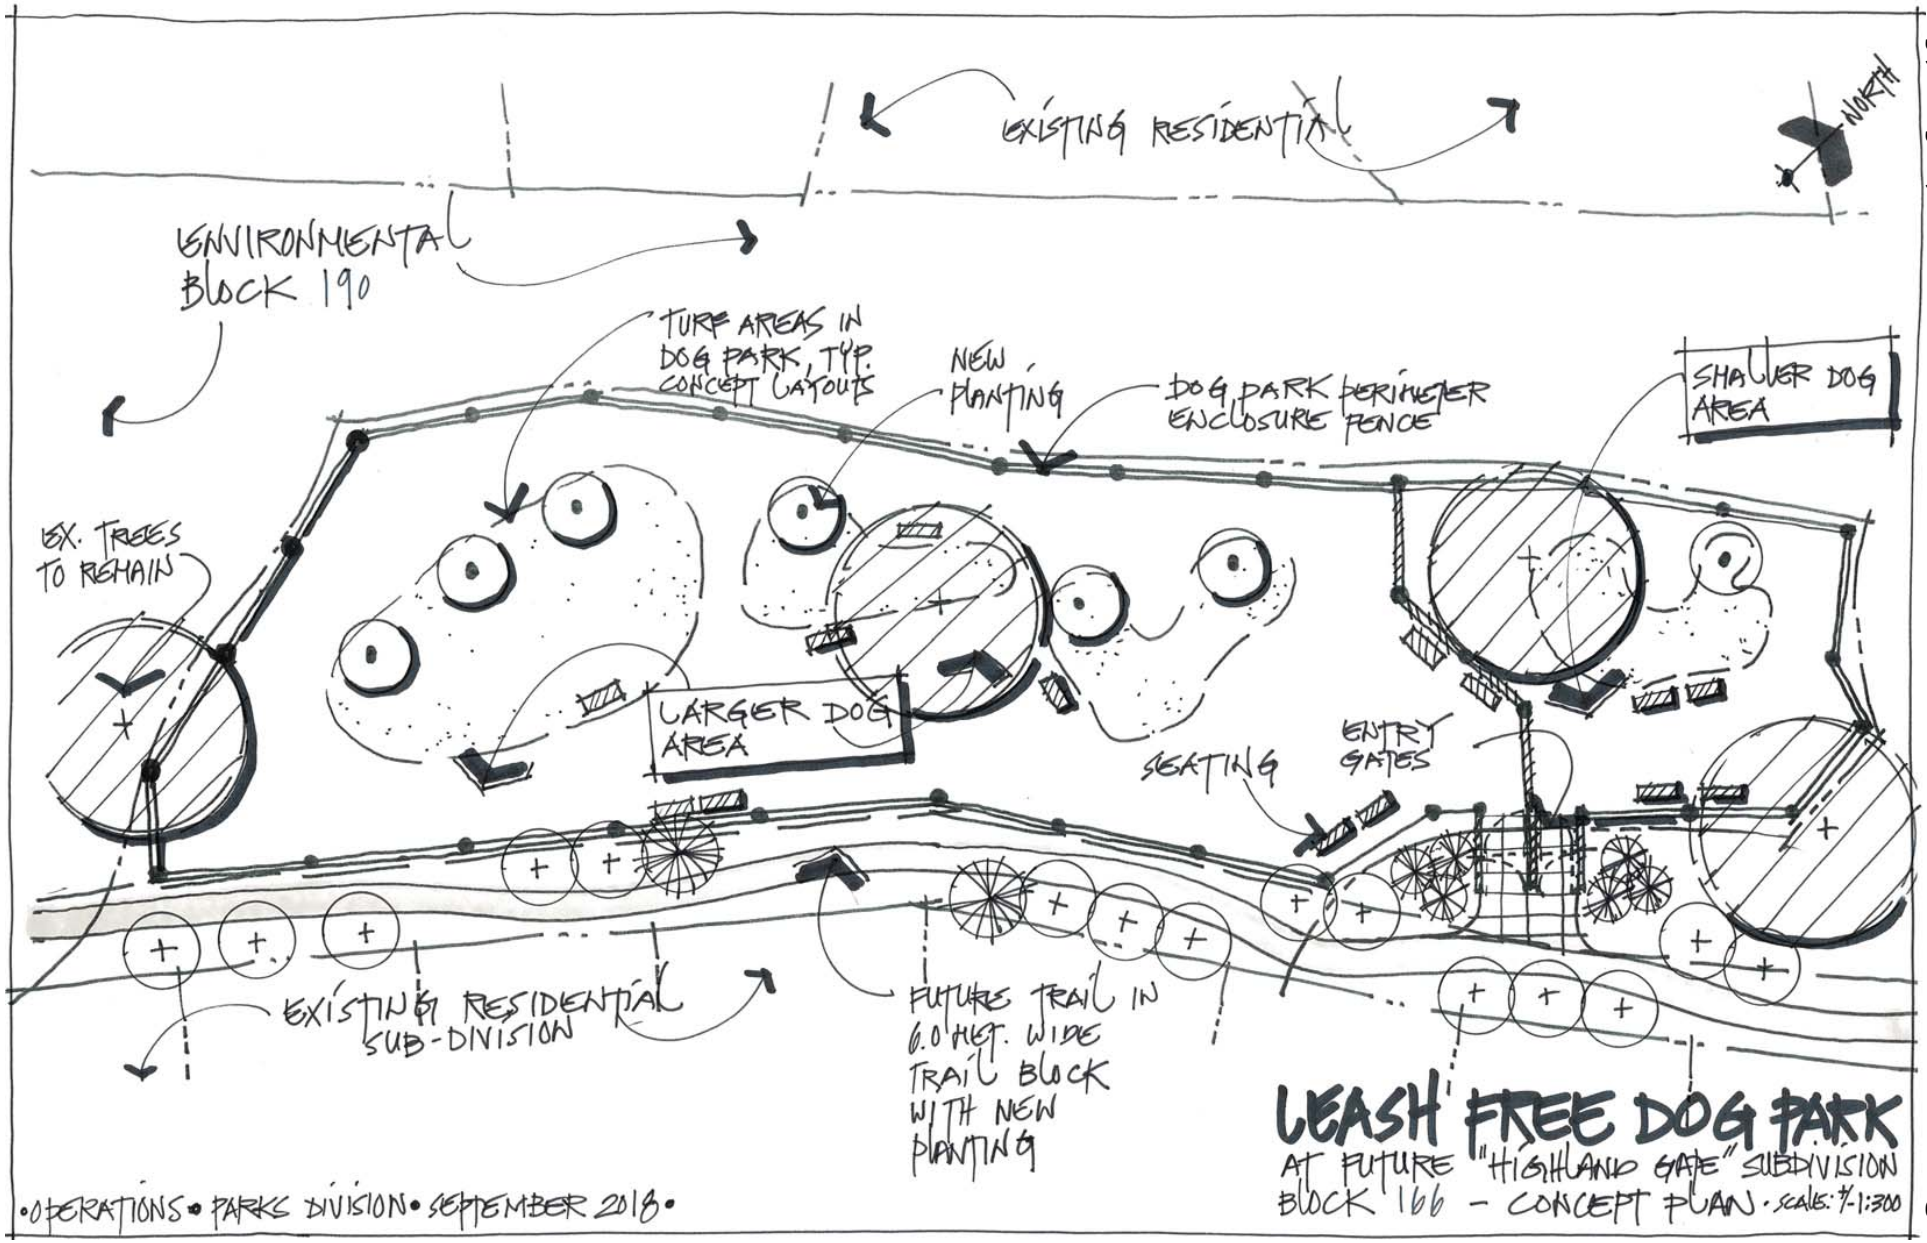 EXISTING RESIDENTIAL
NORTH
ENVIRONMENTAL
BLOCK 190
TURF AREAS IN
DOG PARK, TYP.
CONCEPT LAYOUTS
NEW
PLANTING
DOG PARK PERIMETER
ENCLOSURE FENCE
SMALLER DOG
AREA
EX. TREES
TO REMAIN
LARGER DOG
AREA
SEATING
ENTRY
GATES
EXISTING RESIDENTIAL
SUB-DIVISION
FUTURE TRAIL IN
6.0 MET. WIDE
TRAIL BLOCK
WITH NEW
PLANTING
LEASH FREE DOG PARK
AT FUTURE "HIGHLAND GATE" SUBDIVISION
BLOCK 166 - CONCEPT PLAN • SCALE: +/-1:300
• OPERATIONS • PARKS DIVISION • SEPTEMBER 2018 •